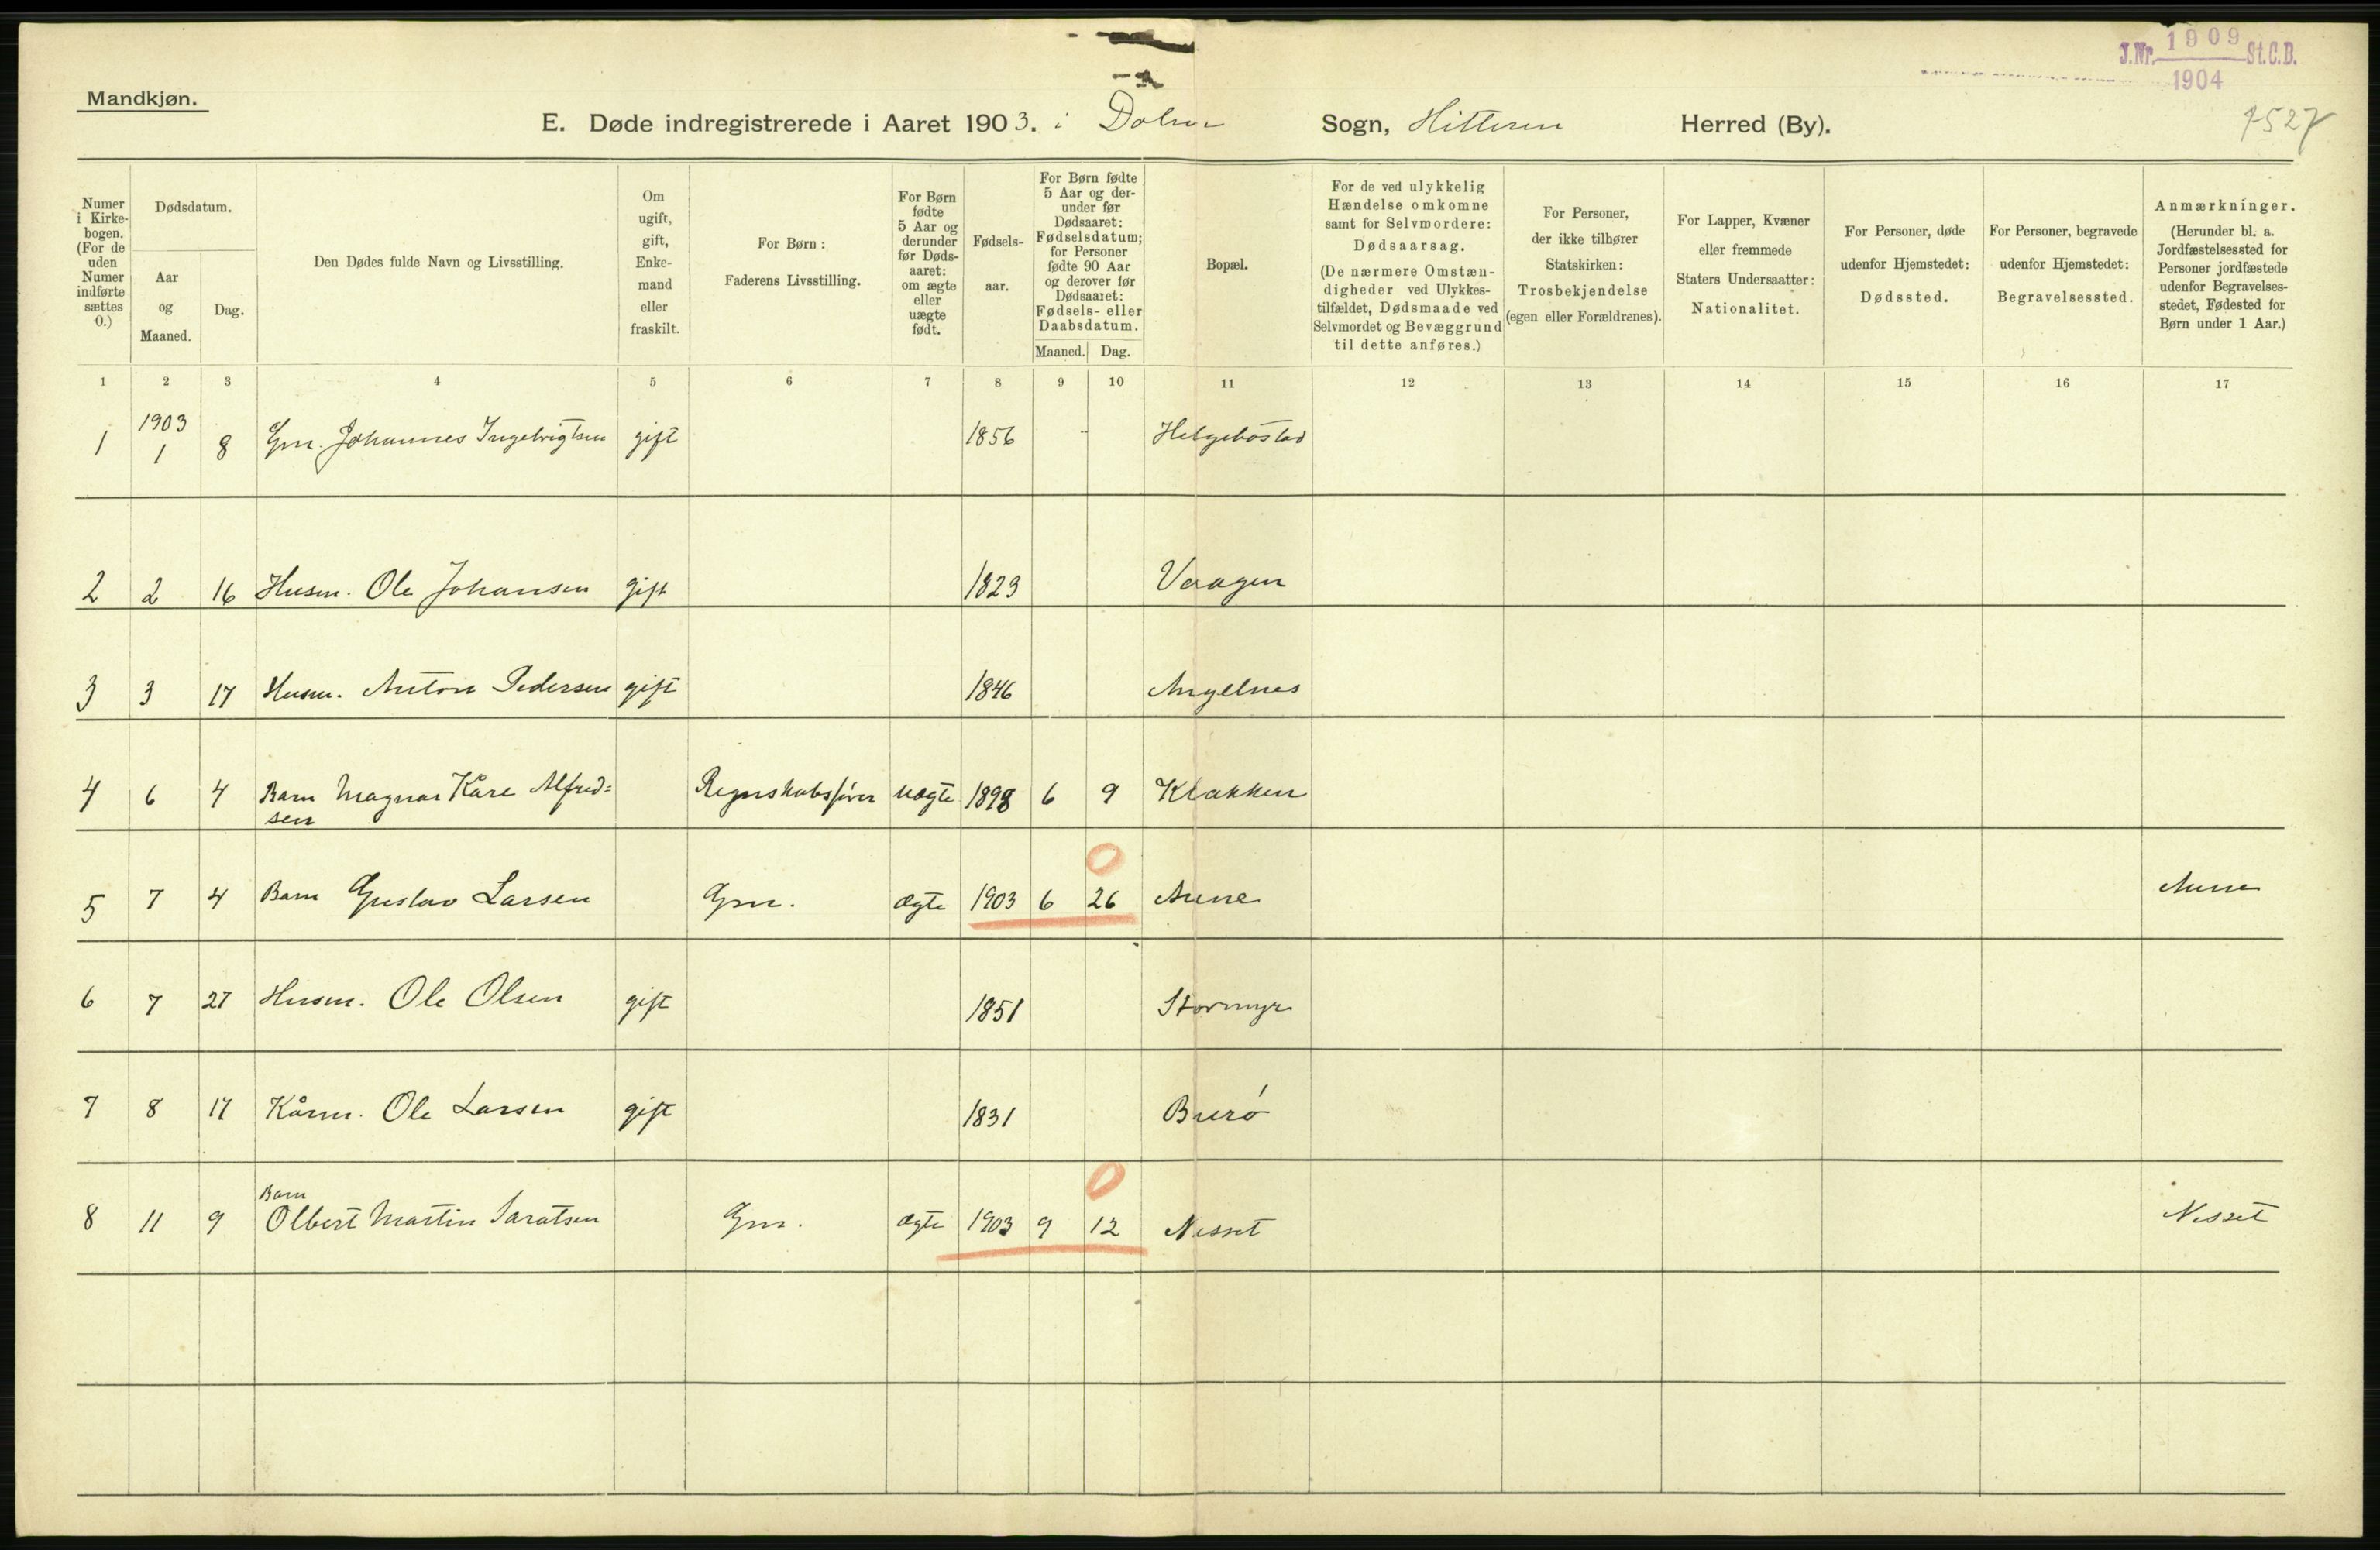 J.Nr. 1909 St.C.B.
1904
Mandkjøn.
E. Døde indregistrerede i Aaret 1903. i Dolmø Sogn, Hitteren Herred (By).
7527
Numer i Kirkebogen. (For de uden Numer indførte sættes 0.)
Dødsdatum.
Aar og Maaned.
Dag.
Den Dødes fulde Navn og Livsstilling.
Om ugift, gift, Enkemand eller fraskilt.
For Børn: Faderens Livsstilling.
For Børn fødte 5 Aar og derunder før Dødsaaret: om ægte eller uægte født.
Fødselsaar.
For Børn fødte 5 Aar og derunder før Dødsaaret: Fødselsdatum; for Personer fødte 90 Aar og derover før Dødsaaret: Fødsels- eller Daabsdatum.
Maaned. Dag.
Bopæl.
For de ved ulykkelig Hændelse omkomne samt for Selvmordere: Dødsaarsag. (De nærmere Omstændigheder ved Ulykkestilfældet, Dødsmaade ved Selvmordet og Bevæggrund til dette anføres.)
For Personer, der ikke tilhører Statskirken: Trosbekjendelse (egen eller Forældrenes).
For Lapper, Kvæner eller fremmede Staters Undersaatter: Nationalitet.
For Personer, døde udenfor Hjemstedet: Dødssted.
For Personer, begravede udenfor Hjemstedet: Begravelsessted.
Anmærkninger. (Herunder bl. a. Jordfæstelsessted for Personer jordfæstede udenfor Begravelsesstedet, Fødested for Børn under 1 Aar.)
1 2 3 4 5 6 7 8 9 10 11 12 13 14 15 16 17
1903
1 1 8 Gm. Johannes Ingebrigtsen gift 1856 Helgebostad
2 2 16 Husm. Ole Johansen gift 1823 Vaagen
3 3 17 Husm. Anton Pedersen gift 1846 Angelnes
4 6 4 Barn Magnar Kåre Alfred= Regnskabsfører uægte 1898 6 9 Klakken
sen
0
5 7 4 Barn Gustav Larsen Gm. ægte 1903 6 26 Aune Aune
6 7 27 Husm. Ole Olsen gift 1851 Stormyr
7 8 17 Kårm. Ole Larsen gift 1831 Burø
0
Barn
8 11 9 Olbert Martin Saratsen Gm. ægte 1903 9 12 Nesset Nesset